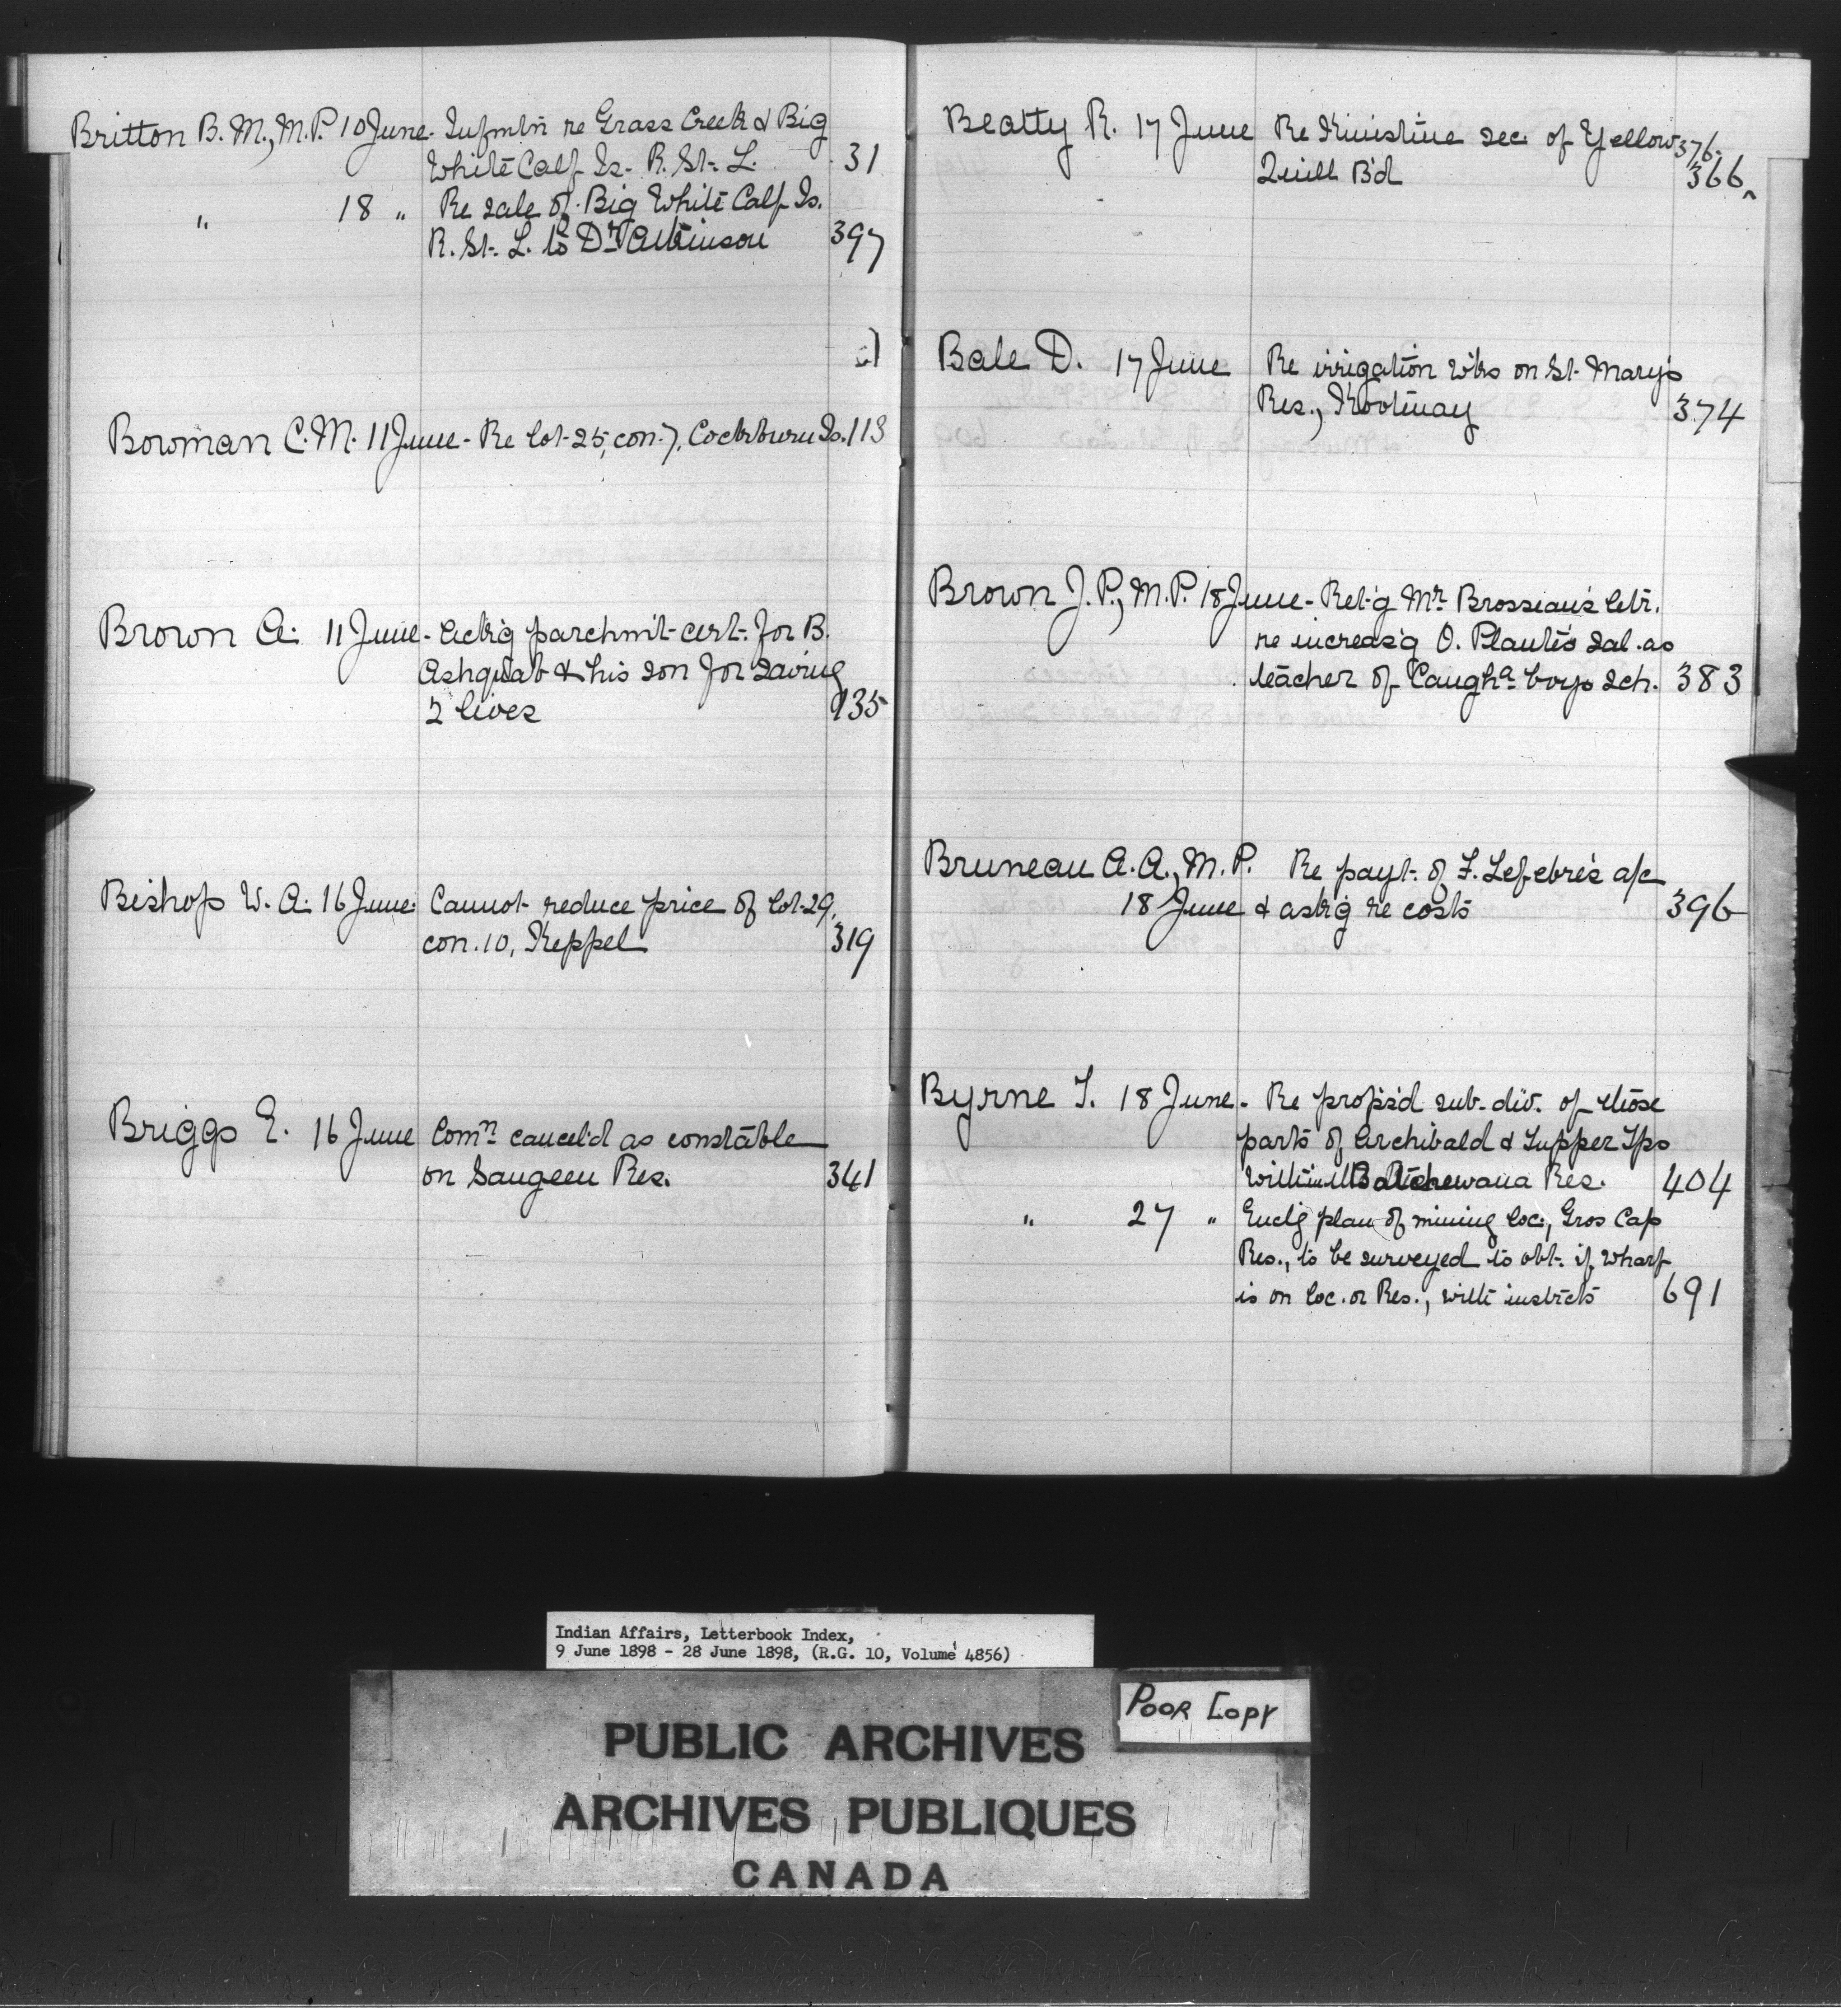 Britton B. M., M.P. 10 June. Infmtn re Grass Creek & Big
White Calf Is. R. St. L. 31
" 18 " Re sale of Big White Calf Is.
R. St. L. to Dr Atkinson 397
Bowman C. M. 11 June - Re lot 25, con. 7, Cockburn Is. 113
Brown A. 11 June - Ackg parchm't cert. for B.
Ashquab & his son for saving
2 lives 135
Bishop W. A. 16 June: Cannot reduce price of lot 29,
con. 10, Keppel 319
Briggs E. 16 June Comn cancel'd as constable
on Saugeen Res. 341
Beatty R. 17 June Re Kinistine sec. of Yellow 376
Quill B'd 366^
Bale D. 17 June Re irrigation w'ks on St. Mary's
Res., Kootenay 374
Brown J. P., M.P. 18 June - Ret'g Mr Brosseau's letr.
re increas'g O. Plante's sal. as
teacher of Caugha boys sch. 383
Bruneau A. A., M. P. Re payt. of F. Lefebre's a/c
18 June & ask'g re costs 396
Byrne T. 18 June - Re propsd sub-div. of those
parts of Archibald & Tupper Tps
within Batchewana Res. 404
" 27 " Enclg plan of mining loc., Gros Cap
Res., to be surveyed to obt. if wharf
is on loc. or Res., with instrcts 691
Indian Affairs, Letterbook Index,
9 June 1898 - 28 June 1898, (R.G. 10, Volume 4856)
POOR COPY
PUBLIC ARCHIVES
ARCHIVES PUBLIQUES
CANADA